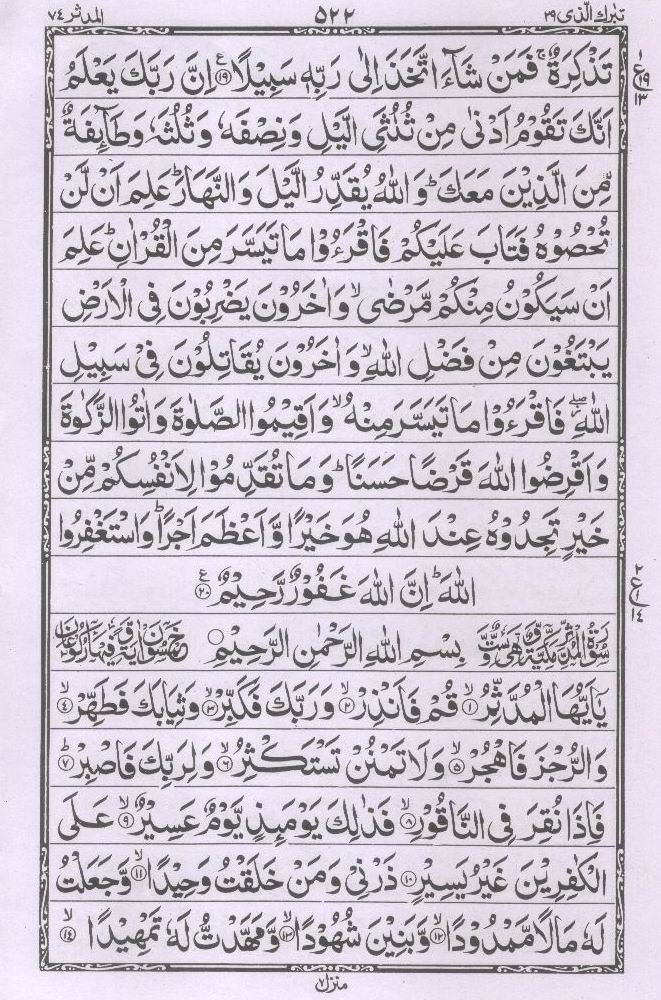 تبٰرك الذی ۲۹ ۵۲۲ المدثر ۷۴
تَذْكِرَةٌ ۚ فَمَنْ شَآءَ اتَّخَذَ اِلٰى رَبِّهٖ سَبِيْلًا ﴿۱۹﴾ اِنَّ رَبَّكَ يَعْلَمُ
اَنَّكَ تَقُوْمُ اَدْنٰى مِنْ ثُلُثَىِ الَّيْلِ وَنِصْفَهٗ وَثُلُثَهٗ وَطَآئِفَةٌ
مِّنَ الَّذِيْنَ مَعَكَ ؕ وَاللّٰهُ يُقَدِّرُ الَّيْلَ وَالنَّهَارَ ؕ عَلِمَ اَنْ لَّنْ
تُحْصُوْهُ فَتَابَ عَلَيْكُمْ فَاقْرَءُوْا مَا تَيَسَّرَ مِنَ الْقُرْاٰنِ ؕ عَلِمَ
اَنْ سَيَكُوْنُ مِنْكُمْ مَّرْضٰى ۙ وَاٰخَرُوْنَ يَضْرِبُوْنَ فِى الْاَرْضِ
يَبْتَغُوْنَ مِنْ فَضْلِ اللّٰهِ ۙ وَاٰخَرُوْنَ يُقَاتِلُوْنَ فِىْ سَبِيْلِ
اللّٰهِ ۖ فَاقْرَءُوْا مَا تَيَسَّرَ مِنْهُ ۙ وَاَقِيْمُوا الصَّلٰوةَ وَاٰتُوا الزَّكٰوةَ
وَاَقْرِضُوا اللّٰهَ قَرْضًا حَسَنًا ؕ وَمَا تُقَدِّمُوْا لِاَنْفُسِكُمْ مِّنْ
خَيْرٍ تَجِدُوْهُ عِنْدَ اللّٰهِ هُوَ خَيْرًا وَّاَعْظَمَ اَجْرًا ؕ وَاسْتَغْفِرُوا
اللّٰهَ ؕ اِنَّ اللّٰهَ غَفُوْرٌ رَّحِيْمٌ ﴿۲۰﴾
سُوْرَةُ الْمُدَّثِّرِ مَكِّيَّةٌ وَّهِىَ سِتٌّ وَّ بِسْمِ اللّٰهِ الرَّحْمٰنِ الرَّحِيْمِ خَمْسُوْنَ اٰيَةً وَّفِيْهَا رُكُوْعَانِ
يٰۤاَيُّهَا الْمُدَّثِّرُ ۙ﴿۱﴾ قُمْ فَاَنْذِرْ ۙ﴿۲﴾ وَرَبَّكَ فَكَبِّرْ ۙ﴿۳﴾ وَثِيَابَكَ فَطَهِّرْ ۙ﴿۴﴾
وَالرُّجْزَ فَاهْجُرْ ۙ﴿۵﴾ وَلَا تَمْنُنْ تَسْتَكْثِرُ ۙ﴿۶﴾ وَلِرَبِّكَ فَاصْبِرْ ؕ﴿۷﴾
فَاِذَا نُقِرَ فِى النَّاقُوْرِ ۙ﴿۸﴾ فَذٰلِكَ يَوْمَئِذٍ يَّوْمٌ عَسِيْرٌ ۙ﴿۹﴾ عَلَى
الْكٰفِرِيْنَ غَيْرُ يَسِيْرٍ ﴿۱۰﴾ ذَرْنِىْ وَمَنْ خَلَقْتُ وَحِيْدًا ۙ﴿۱۱﴾ وَّجَعَلْتُ
لَهٗ مَالًا مَّمْدُوْدًا ۙ﴿۱۲﴾ وَّبَنِيْنَ شُهُوْدًا ۙ﴿۱۳﴾ وَّمَهَّدْتُّ لَهٗ تَمْهِيْدًا ۙ﴿۱۴﴾
منزل ۷